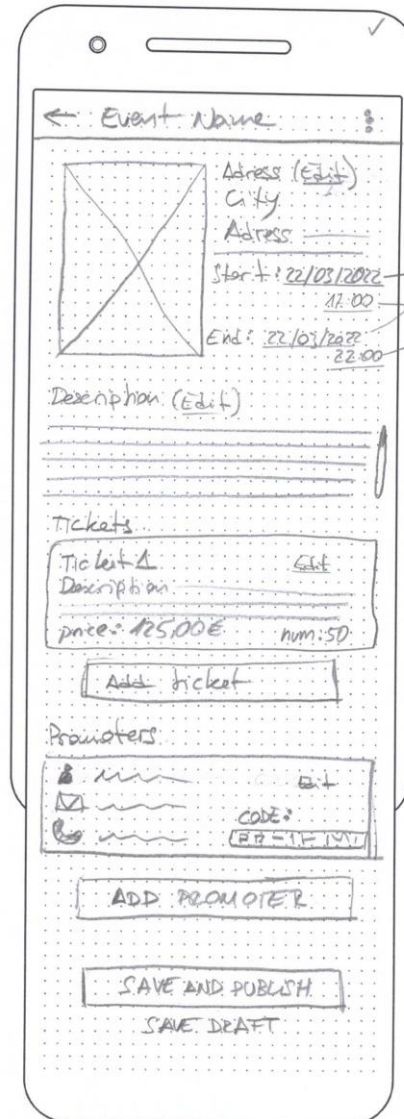 ← Event Name
Adress (Edit)
City
Adress
Start: 22/03/2022
17:00
End: 22/03/2022
22:00
Description (Edit)
Tickets
Ticket 1 Edit
Description
price: 125,00€ num: 50
Add ticket
Promoters
Edit
CODE:
ADD PROMOTER
SAVE AND PUBLISH
SAVE DRAFT